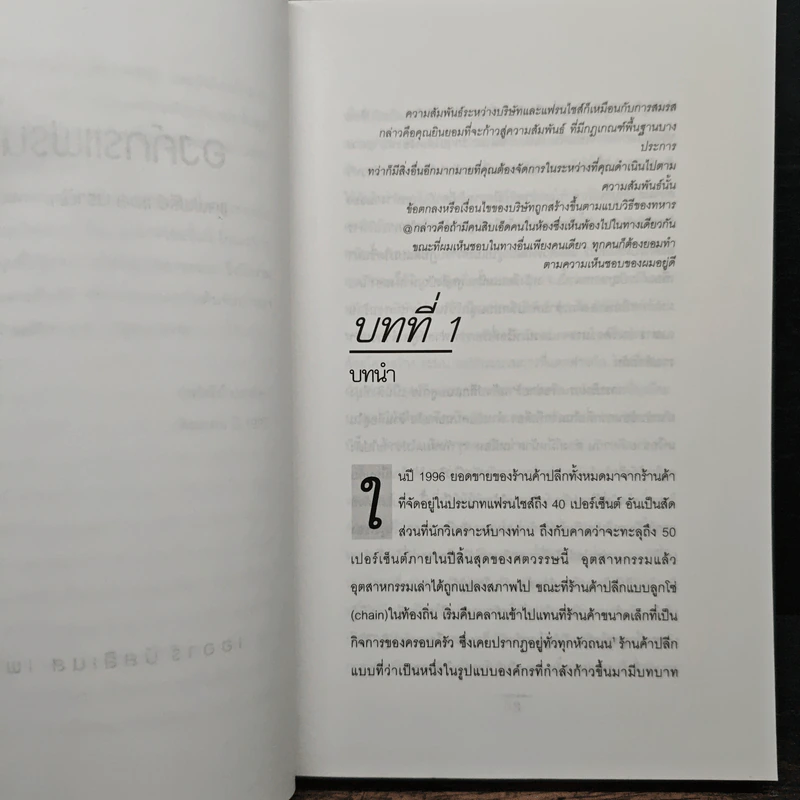 ความสัมพันธ์ระหว่างบริษัทและแฟรนไชส์ก็เหมือนกับการสมรส
กล่าวคือคุณยินยอมที่จะก้าวสู่ความสัมพันธ์ ที่มีกฎเกณฑ์พื้นฐานบาง
ประการ
ทว่าก็มีสิ่งอื่นอีกมากมายที่คุณต้องจัดการในระหว่างที่คุณดำเนินไปตาม
ความสัมพันธ์นั้น
ข้อตกลงหรือเงื่อนไขของบริษัทถูกสร้างขึ้นตามแบบวิธีของทหาร
@กล่าวคือถ้ามีคนสิบเอ็ดคนในห้องซึ่งเห็นพ้องไปในทางเดียวกัน
ขณะที่ผมเห็นชอบในทางอื่นเพียงคนเดียว ทุกคนก็ต้องยอมทำ
ตามความเห็นชอบของผมอยู่ดี
บทที่ 1
บทนำ
ในปี 1996 ยอดขายของร้านค้าปลีกทั้งหมดมาจากร้านค้า
ที่จัดอยู่ในประเภทแฟรนไชส์ถึง 40 เปอร์เซ็นต์ อันเป็นสัด
ส่วนที่นักวิเคราะห์บางท่าน ถึงกับคาดว่าจะทะลุถึง 50
เปอร์เซ็นต์ภายในปีสิ้นสุดของศตวรรษนี้ อุตสาหกรรมแล้ว
อุตสาหกรรมเล่าได้ถูกแปลงสภาพไป ขณะที่ร้านค้าปลีกแบบลูกโซ่
(chain)ในท้องถิ่น เริ่มคืบคลานเข้าไปแทนที่ร้านค้าขนาดเล็กที่เป็น
กิจการของครอบครัว ซึ่งเคยปรากฏอยู่ทั่วทุกหัวถนน¹ ร้านค้าปลีก
แบบที่ว่าเป็นหนึ่งในรูปแบบองค์กรที่กำลังก้าวขึ้นมามีบทบาท